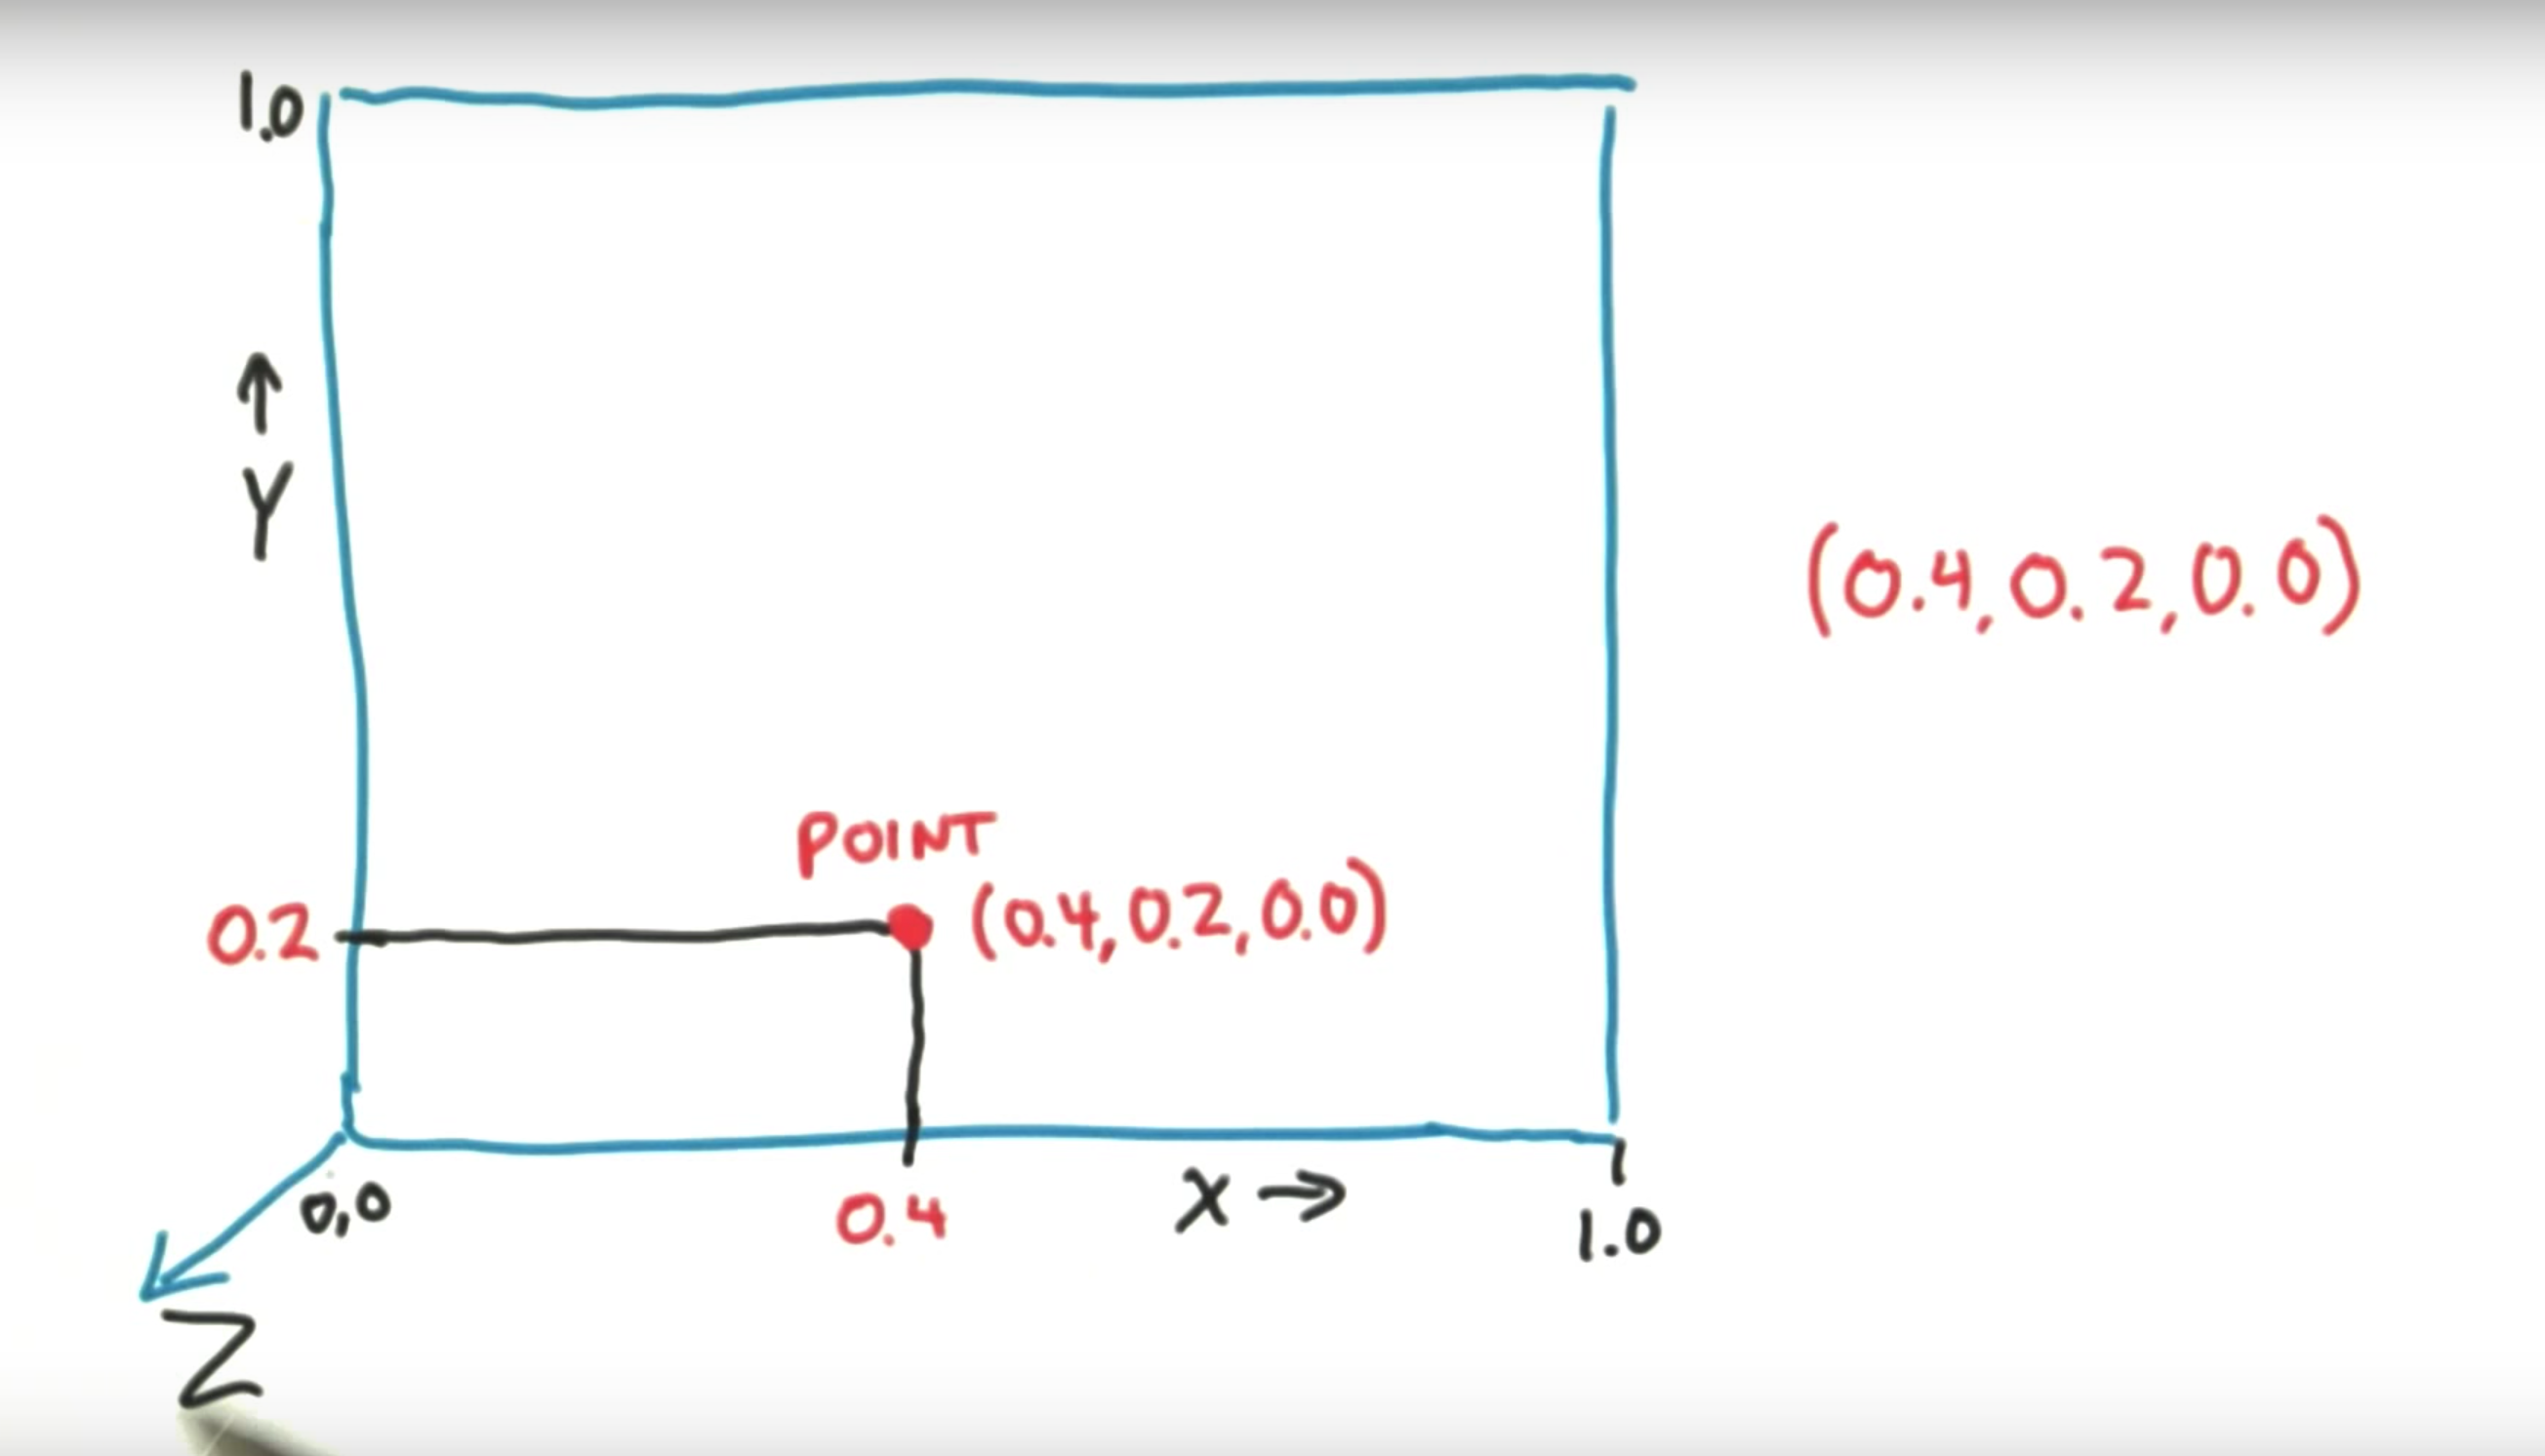 1.0
↑
Y
(0.4, 0.2, 0.0)
POINT
0.2
(0.4, 0.2, 0.0)
0,0
0.4
X →
1.0
Z